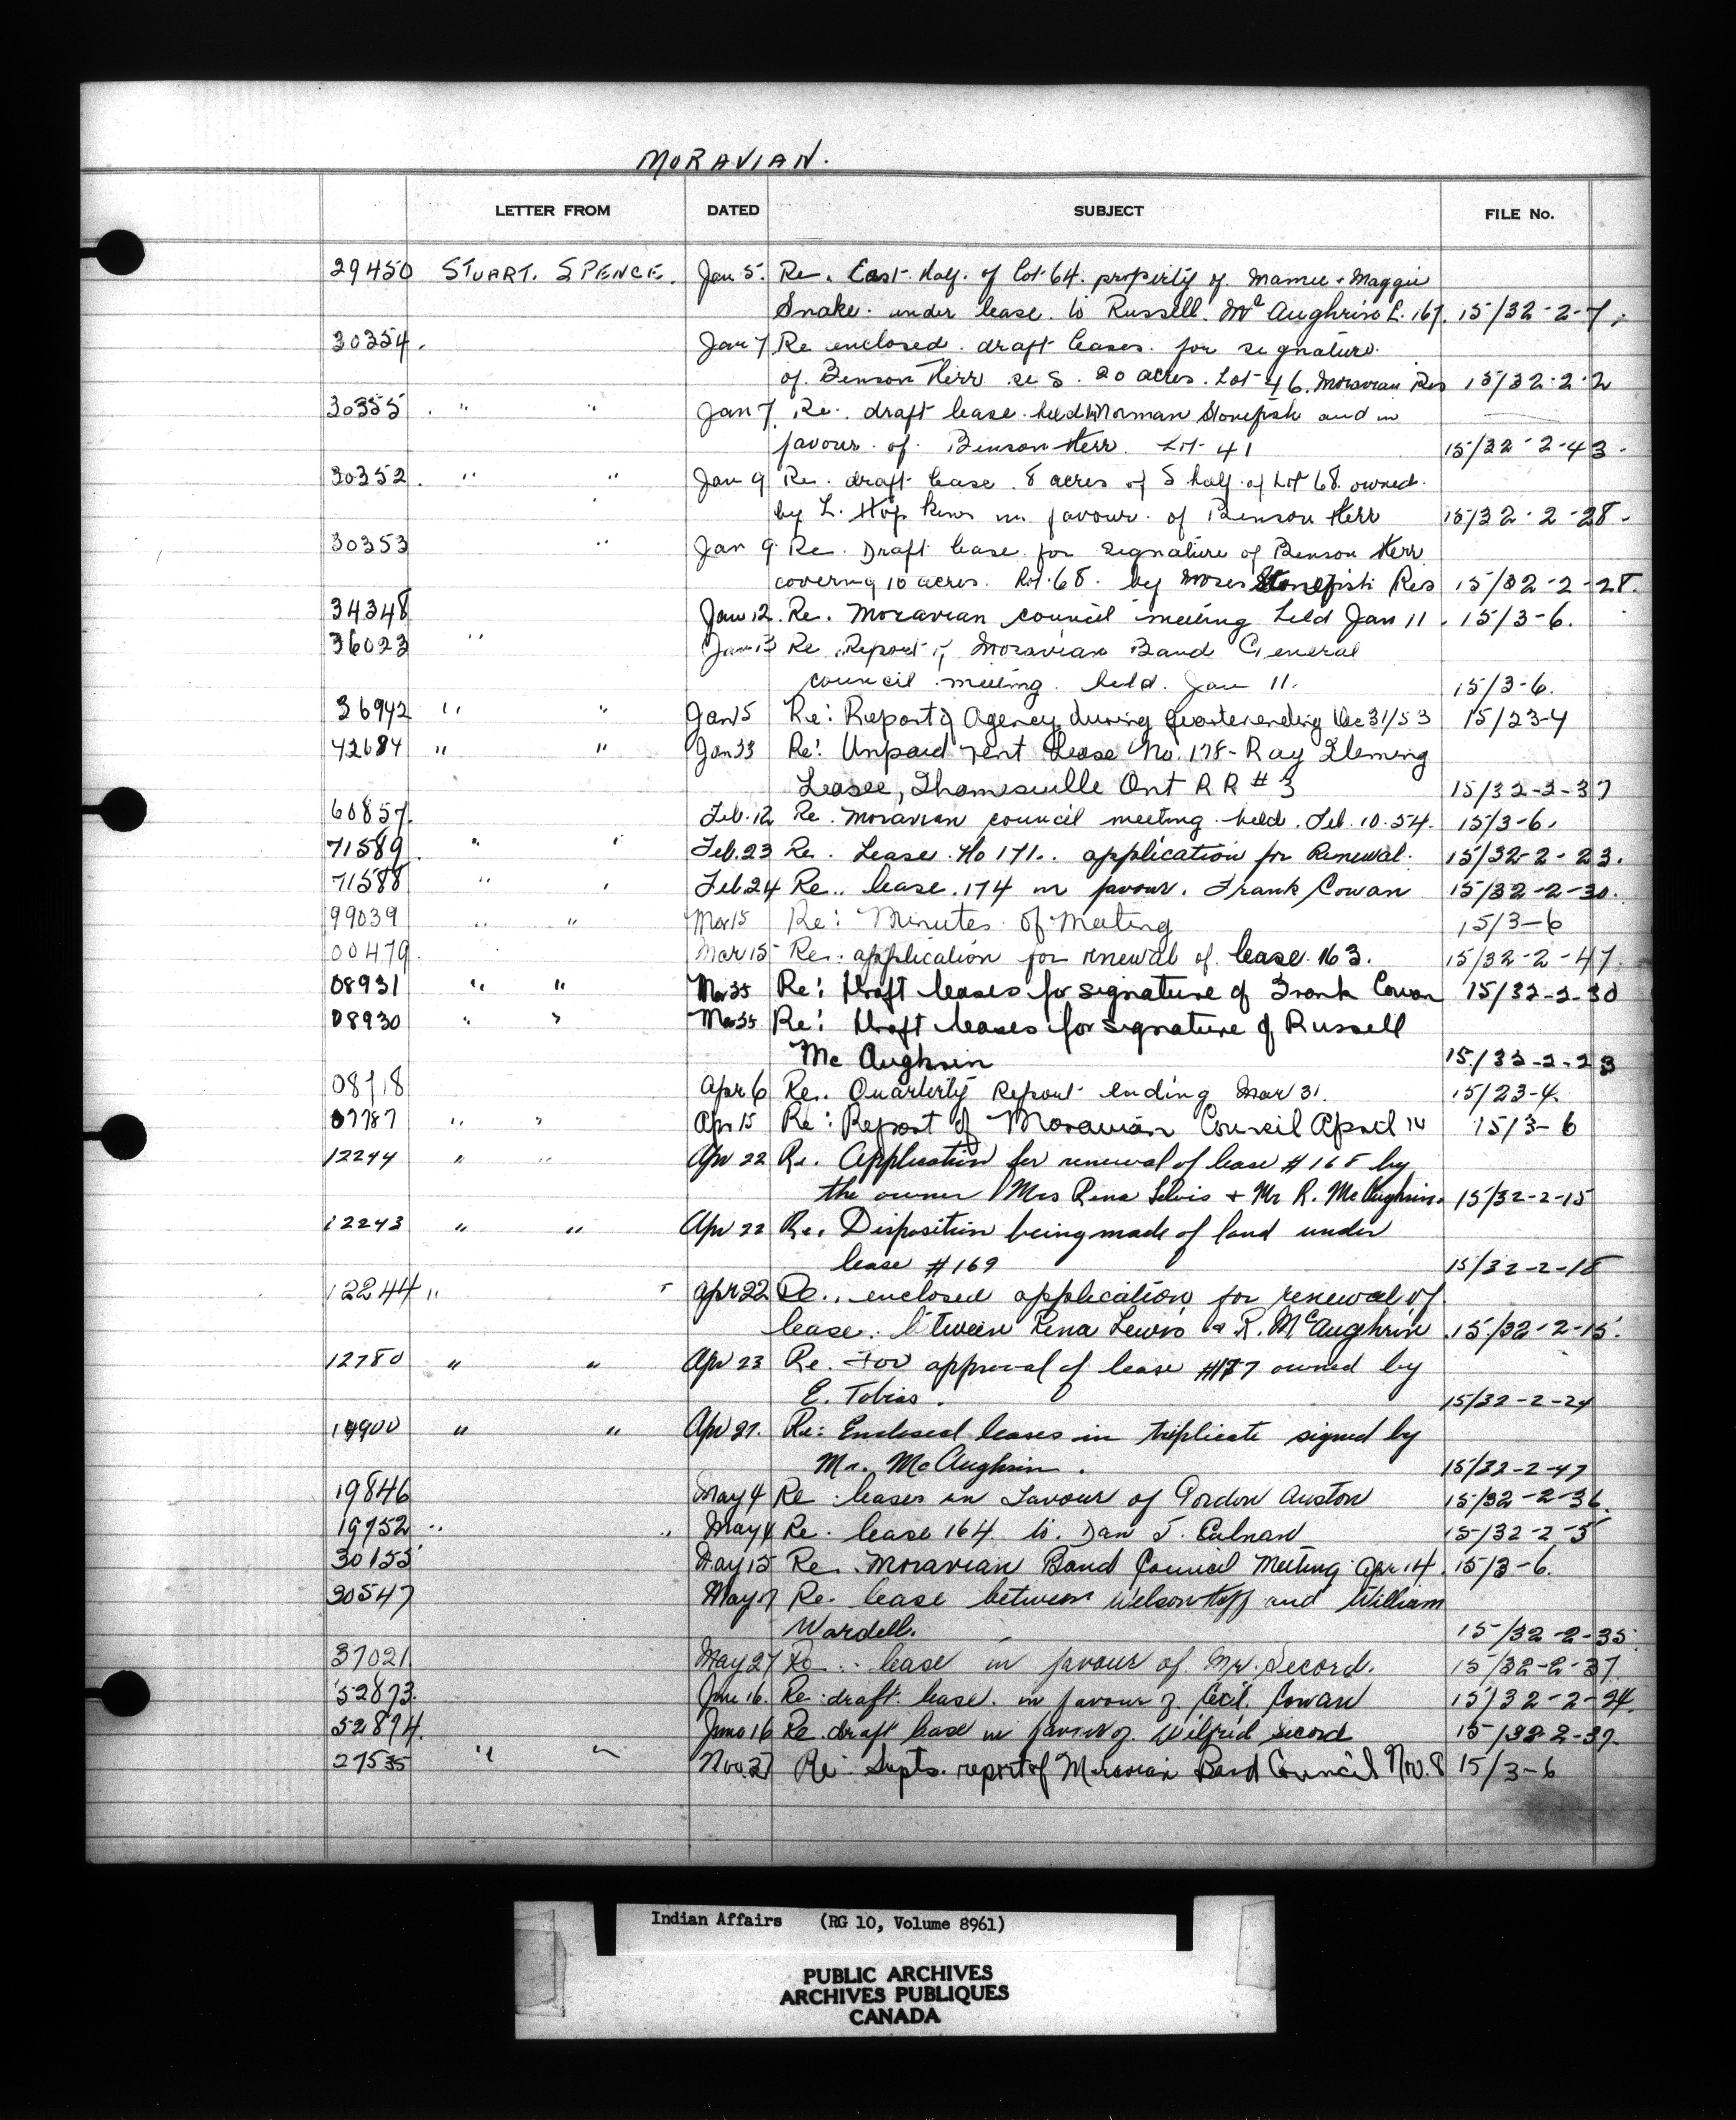 MORAVIAN.
LETTER FROM DATED SUBJECT FILE No.
29450 STUART. SPENCE. Jan 5. Re. East half. of lot 64. property of. Mamie & Maggie
Snake. under lease. to Russell. Mc Aughrin L. 167. 15/32-2-7.
30354. Jan 7 Re enclosed. draft leases. for signature.
of. Benson Kerr re S. 20 acres. Lot 46. Moravian Res 15/32-2-2
30355. " " Jan 7. Re. draft lease held Norman Stonefish and in
favour. of. Benson Kerr. Lot 41 15/32-2-43.
30352. " " Jan 9 Re. draft lease. 8 acres of S half of Lot 68. owned.
by L. Hopkins in favour. of Benson Kerr 15/32-2-28.
30353 " Jan 9 Re. Draft lease for signature of Benson Kerr
covering 10 acres. Lot. 68. by Moses Stonefish Res 15/32-2-28.
34348 Jan 12. Re. Moravian council meeting held Jan 11. 15/3-6.
36023 " Jan 13 Re. Report of Moravian Band General
council meeting. held. Jan 11. 15/3-6.
36942 " " Jan 15 Re: Report of Agency during quarter ending Dec 31/53 15/23-4
42684 " " Jan 23 Re: Unpaid rent Lease No. 178 - Ray Fleming
Leasee, Thamesville Ont R R # 3 15/32-2-37
60857. Feb. 12 Re. Moravian council meeting held. Feb. 10. 54. 15/3-6.
71589. " " Feb. 23 Re. Lease. No 171.. application for Renewal. 15/32-2-23.
71588 " " Feb 24 Re.. lease. 174 in favour. Frank Cowan 15/32-2-30.
99039 " " Mar 15 Re: Minutes of Meeting 15/3-6
00479. Mar 15 Re. application for renewal of. lease. 163. 15/32-2-47.
08931 " " Mar 25 Re: Draft leases for signature of Frank Cowan 15/32-2-30
08930 " " Mar 25 Re: Draft leases for signature of Russell
Mc Aughrin 15/32-2-23
08718 Apr 6 Re. Quarterly Report ending Mar 31. 15/23-4.
07787 " " Apr 15 Re: Report of Moravian Council April 14 15/3-6
12244 " " Apr 22 Re. Application for renewal of lease # 168 by
the owner Mrs Rena Lewis + Mr R. Mc Aughrin. 15/32-2-15
12243 " " Apr 22 Re. Disposition being made of land under
lease # 169 15/32-2-18
12244 " " Apr 22 Re.. enclosed application for renewal of
lease. between Rena Lewis & R. McAughrin. 15/32-2-15.
12780 " " Apr 23 Re. For approval of lease #177 owned by
E. Tobias. 15/32-2-24
14900 " " Apr 27. Re: Enclosed leases in triplicate signed by
Mr. McAughrin. 15/32-2-47
19846 May 4 Re leases in favour of Gordon Auston 15/32-2-36.
19752 " " May 4 Re. lease 164. to. Dan J. 15/32-2-5
30155 May 15 Re. Moravian Band Council Meeting Apr 14. 15/3-6.
30547 May 17 Re. lease between Nelson Huff and William
Wardell. 15/32-2-35.
37021 May 27 Re. lease in favour of Mr. Secord. 15/32-2-37.
52873. June 16. Re. draft. lease. in favour of. Cecil. Cowan 15/32-2-24.
52874. June 16 Re. draft lease in favour of. Wilfrid Secord 15/32-2-37.
27535 " " Nov. 27 Re: Supts. report of Moravian Band Council Nov. 8 15/3-6
Indian Affairs (RG 10, Volume 8961)
PUBLIC ARCHIVES
ARCHIVES PUBLIQUES
CANADA